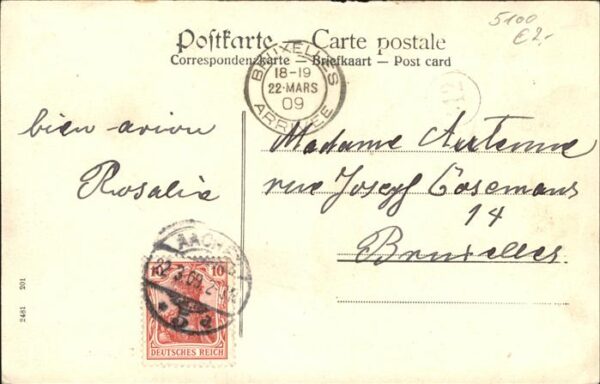 5100
€2,-
Postkarte — Carte postale
Correspondenzkarte — Briefkaart — Post card
BRUXELLES
18-19
22·MARS
09
ARRIVÉE
12
bien avion
Rosalie
Madame Autenne
rue Joseph Cosemans
14
Bruxelles
AACHEN
22.3.09.2
10
DEUTSCHES REICH
2461 201